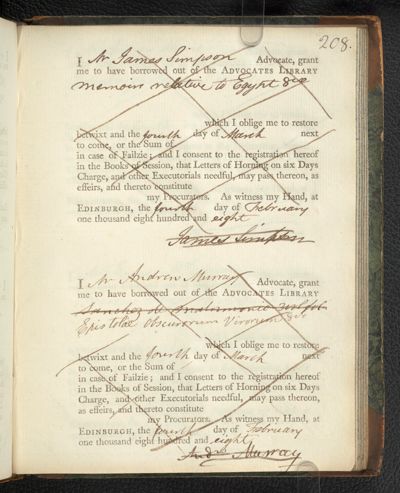 208.
I Mr James Simpson Advocate, grant
me to have borrowed out of the ADVOCATES LIBRARY
memoirs relative to Egypt &ca
which I oblige me to restore
betwixt and the fourth day of March next
to come, or the Sum of
in case of Failzie; and I consent to the registration hereof
in the Books of Session, that Letters of Horning on six Days
Charge, and other Executorials needful, may pass thereon, as
effeirs, and thereto constitute
my Procurators. As witness my Hand, at
EDINBURGH, the fourth day of February
one thousand eight hundred and eight
James Simpson
I Mr Andrew Murray Advocate, grant
me to have borrowed out of the ADVOCATES LIBRARY
Sanchez de matrimonio
Epistolæ Obscurorum Virorum
which I oblige me to restore
betwixt and the fourth day of March next
to come, or the Sum of
in case of Failzie; and I consent to the registration hereof
in the Books of Session, that Letters of Horning on six Days
Charge, and other Executorials needful, may pass thereon,
as effeirs, and thereto constitute
my Procurators. As witness my Hand, at
EDINBURGH, the fourth day of February
one thousand eight hundred and eight
Andw Murray